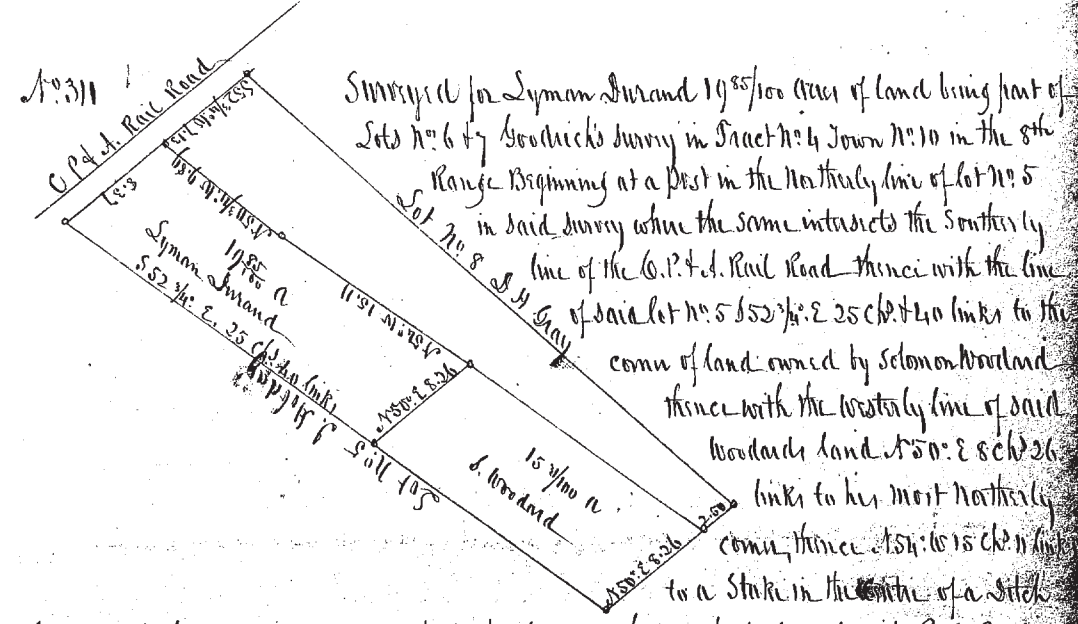 No. 311
Surveyed for Lyman Durand 19 85/100 acres of land being part of
Lots No. 6 & 7 Goodrich's survey in Tract No. 4 Town No. 10 in the 8th
Range Beginning at a post in the Northerly line of lot No. 5
in said survey where the same intersects the Southerly
line of the C. P. & A. Rail Road thence with the line
of said lot No. 5 S 52 3/4° E 25 chs. & 40 links to the
corner of land owned by Solomon Woodard
thence with the westerly line of said
Woodards land N 50° E 8 chs 26
links to his most Northerly
corner, thence N 54° W 15 chs. 11 links
to a Stake in the centre of a Ditch
C. P. & A. Rail Road
8.37
N 50 3/4 W 9.89
19 85/100 a
Lyman Durand
S 52 3/4° E. 25 chs. 40 links
N 54° W 15.11
N 50° E 8.26
Lot No. 8 D H Gray
Lot No. 5
15 11/100 a
S. Woodard
N 50° E 8.26
2.50